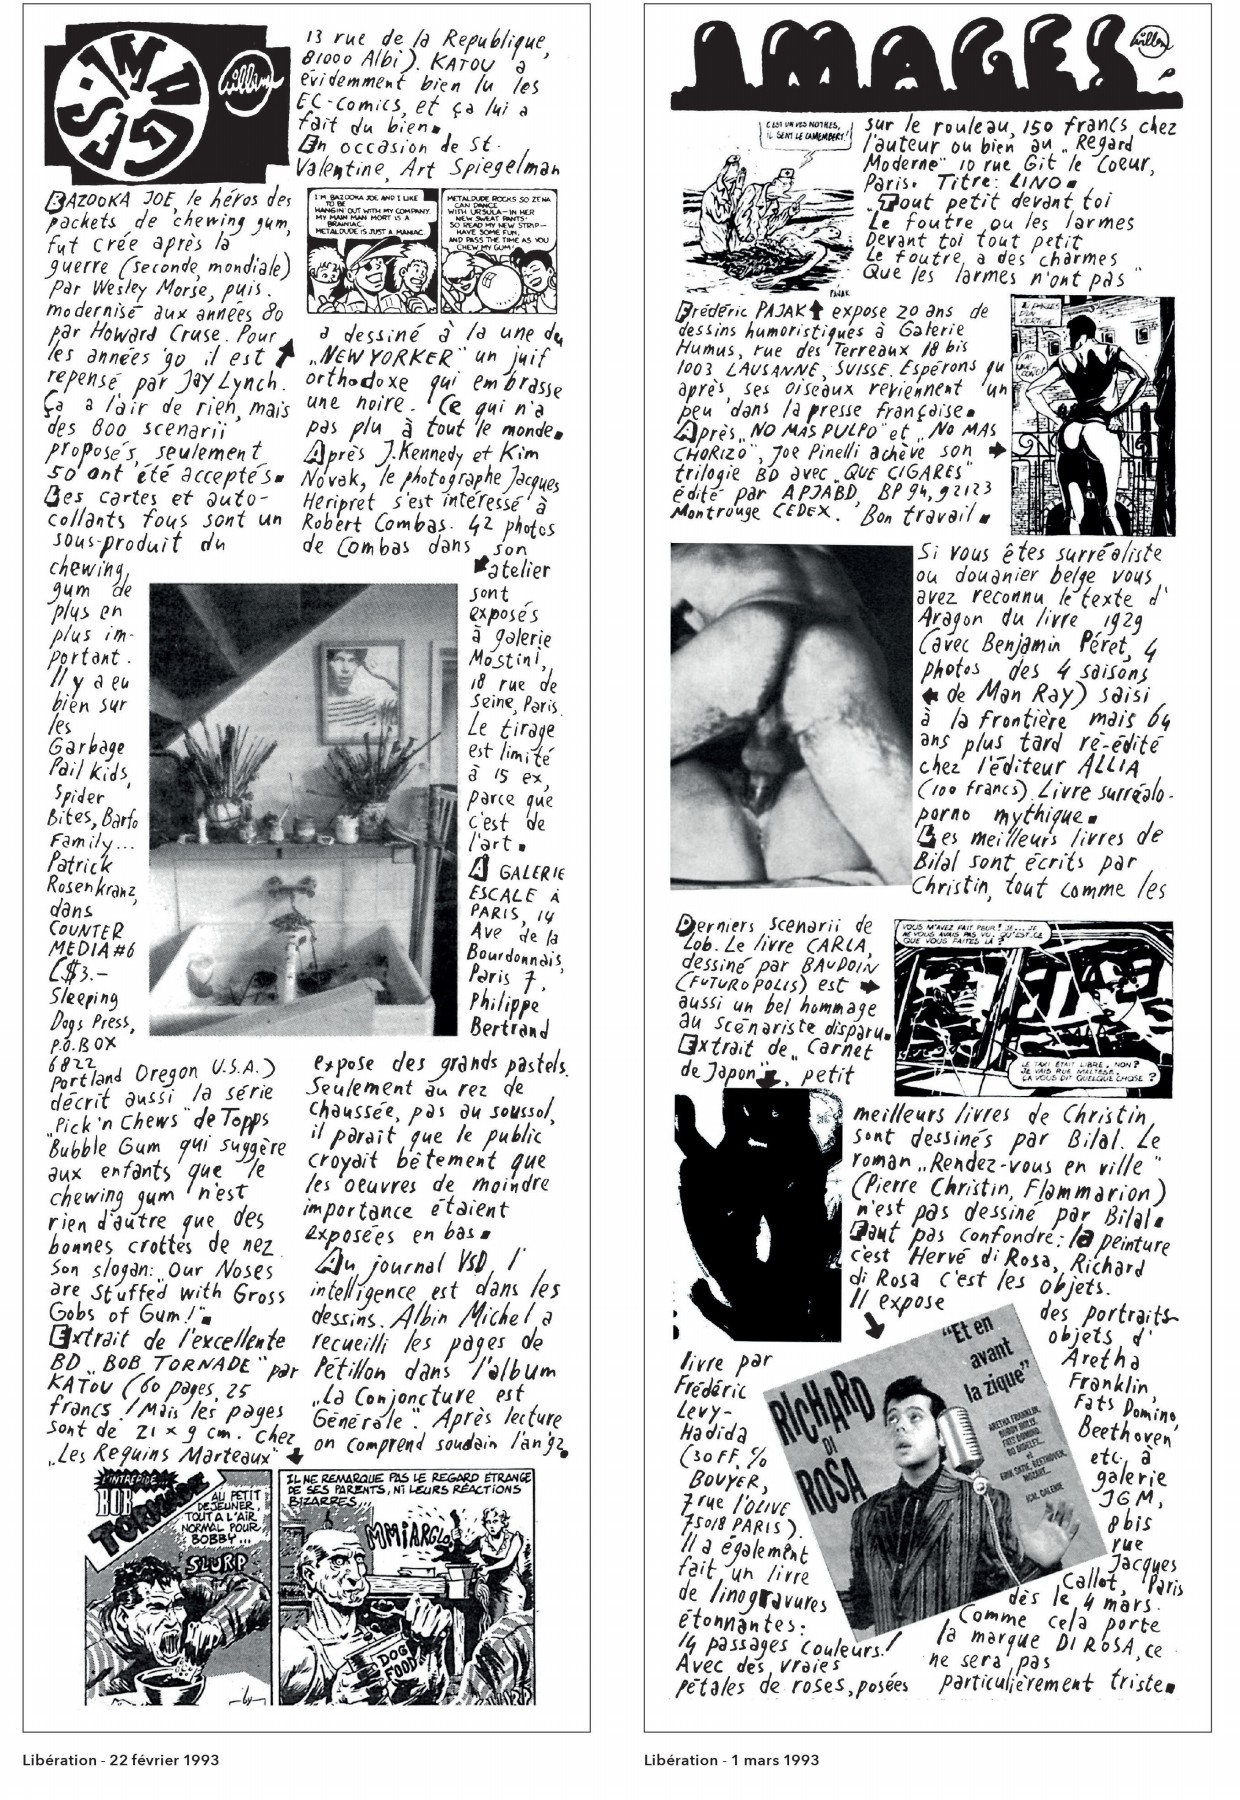 IMAGES
Willem
BAZOOKA JOE, le héros des
packets de chewing gum,
fut crée après la
guerre (seconde mondiale)
par Wesley Morse, puis
modernisé aux années 80
par Howard Cruse. Pour
les années '90 il est
repensé par Jay Lynch.
Ça a l'air de rien, mais
des 800 scenarii
proposés, seulement
50 ont été acceptés.
Les cartes et auto-
collants fous sont un
sous-produit du
chewing
gum de
plus en
plus im-
portant.
Il y a eu
bien sur
les
Garbage
Pail Kids,
Spider
Bites, Barfo
Family...
Patrick
Rosenkranz,
dans
COUNTER
MEDIA #6
($3.-
Sleeping
Dogs Press,
P.O. BOX
6822
Portland Oregon U.S.A.)
décrit aussi la série
"Pick 'n Chews" de Topps
Bubble Gum qui suggère
aux enfants que le
chewing gum n'est
rien d'autre que des
bonnes crottes de nez.
Son slogan: "Our Noses
are Stuffed with Gross
Gobs of Gum!".
Extrait de l'excellente
BD "BOB TORNADE" par
KATOU (60 pages, 25
francs! Mais les pages
sont de 21 x 9 cm. Chez
"Les Requins Marteaux"
13 rue de la Republique,
81000 Albi). KATOU a
évidemment bien lu les
EC-Comics, et ça lui a
fait du bien.
En occasion de St.
Valentine, Art Spiegelman
I'M BAZOOKA JOE AND I LIKE
TO BE
HANGIN' OUT WITH MY COMPANY.
MY MAIN MAN MORT IS A
BRAINIAC.
METALDUDE IS JUST A MANIAC.
METALDUDE ROCKS SO ZENA
CAN DANCE
WITH URSULA—IN HER
NEW SWEAT PANTS.
SO READ MY NEW STRIP—
HAVE SOME FUN,
AND PASS THE TIME AS YOU
CHEW MY GUM!
a dessiné à la une du
"NEW YORKER" un juif
orthodoxe qui embrasse
une noire. Ce qui n'a
pas plu à tout le monde.
Après J. Kennedy et Kim
Novak, le photographe Jacques
Heripret s'est intéressé à
Robert Combas. 42 photos
de Combas dans son
atelier
sont
exposés
à galerie
Mostini,
18 rue de
Seine, Paris.
Le tirage
est limité
à 15 ex,
parce que
c'est de
l'art.
A GALERIE
ESCALE À
PARIS, 14
Ave de la
Bourdonnais,
Paris 7,
Philippe
Bertrand
expose des grands pastels.
Seulement au rez de
chaussée, pas au soussol,
il parait que le public
croyait bêtement que
les oeuvres de moindre
importance étaient
exposées en bas.
Au journal VSD, l'
intelligence est dans les
dessins. Albin Michel a
recueilli les pages de
Pétillon dans l'album
"La Conjoncture est
Générale". Après lecture
on comprend soudain l'an 92.
L'INTREPIDE...
BOB
TORNADE
AU PETIT
DEJEUNER,
TOUT A L'AIR
NORMAL POUR
BOBBY...
SLURP
IL NE REMARQUE PAS LE REGARD ÉTRANGE
DE SES PARENTS, NI LEURS RÉACTIONS
BIZARRES...
MMIARGL
DOG
FOOD
Libération - 22 février 1993
IMAGES
Willem
C'EST UN DES NOTRES,
IL SENT LE CAMEMBERT!
PAJAK
sur le rouleau, 150 francs chez
l'auteur ou bien au "Regard
Moderne" 10 rue Git le Coeur,
Paris. Titre: LINO.
"Tout petit devant toi
Le foutre ou les larmes
Devant toi tout petit
Le foutre a des charmes
Que les larmes n'ont pas"
Frédéric PAJAK expose 20 ans de
dessins humoristiques à Galerie
Humus, rue des Terreaux 18 bis
1003 LAUSANNE, SUISSE. Espérons qu
après, ses oiseaux reviennent un
peu dans la presse française.
Après "NO MAS PULPO" et "NO MAS
CHORIZO", Joe Pinelli achève son
trilogie BD avec "QUE CIGARES"
édité par APJABD, BP 94, 92123
Montrouge CEDEX. Bon travail.
Si vous êtes surréaliste
ou douanier belge vous
avez reconnu le texte d'
Aragon du livre 1929
(avec Benjamin Péret, 4
photos des 4 saisons
de Man Ray) saisi
à la frontière mais 64
ans plus tard ré-édité
chez l'éditeur ALLIA
(100 francs). Livre surréalo-
porno mythique.
Les meilleurs livres de
Bilal sont écrits par
Christin, tout comme les
Derniers scenarii de
Lob. Le livre CARLA,
dessiné par BAUDOIN
(FUTUROPOLIS) est
aussi un bel hommage
au scénariste disparu.
Extrait de "Carnet
de Japon", petit
VOUS M'AVEZ FAIT PEUR! JE... JE
NE VOUS AVAIS PAS VU. QU'EST-CE
QUE VOUS FAITES LÀ?
LE TAXI ÉTAIT LIBRE, NON?
JE VAIS RUE MALTESE.
ÇA VOUS DIT QUELQUE CHOSE?
meilleurs livres de Christin
sont dessinés par Bilal. Le
roman "Rendez-vous en ville"
(Pierre Christin, Flammarion)
n'est pas dessiné par Bilal.
Faut pas confondre: la peinture
c'est Hervé di Rosa, Richard
di Rosa c'est les objets.
Il expose
des portraits-
objets d'
Aretha
Franklin,
Fats Domino,
Beethoven
etc, à
galerie
JGM,
8 bis
rue
Jacques
Callot, Paris
dès le 4 mars.
Comme cela porte
la marque DI ROSA, ce
ne sera pas
particulièrement triste.
livre par
Frédéric
Levy-
Hadida
(30 FF, %
BOUYER,
7 rue l'OLIVE
75018 PARIS).
Il a également
fait un livre
de linogravures
étonnantes:
14 passages couleurs!
Avec des vraies
pétales de roses, posées
"Et en
avant
la zique"
RICHARD
DI
ROSA
ARETHA FRANKLIN,
BUDDY HOLLY,
FATS DOMINO,
BO DIDDLEY...
et
ERIK SATIE, BEETHOVEN,
MOZART...
Libération - 1 mars 1993